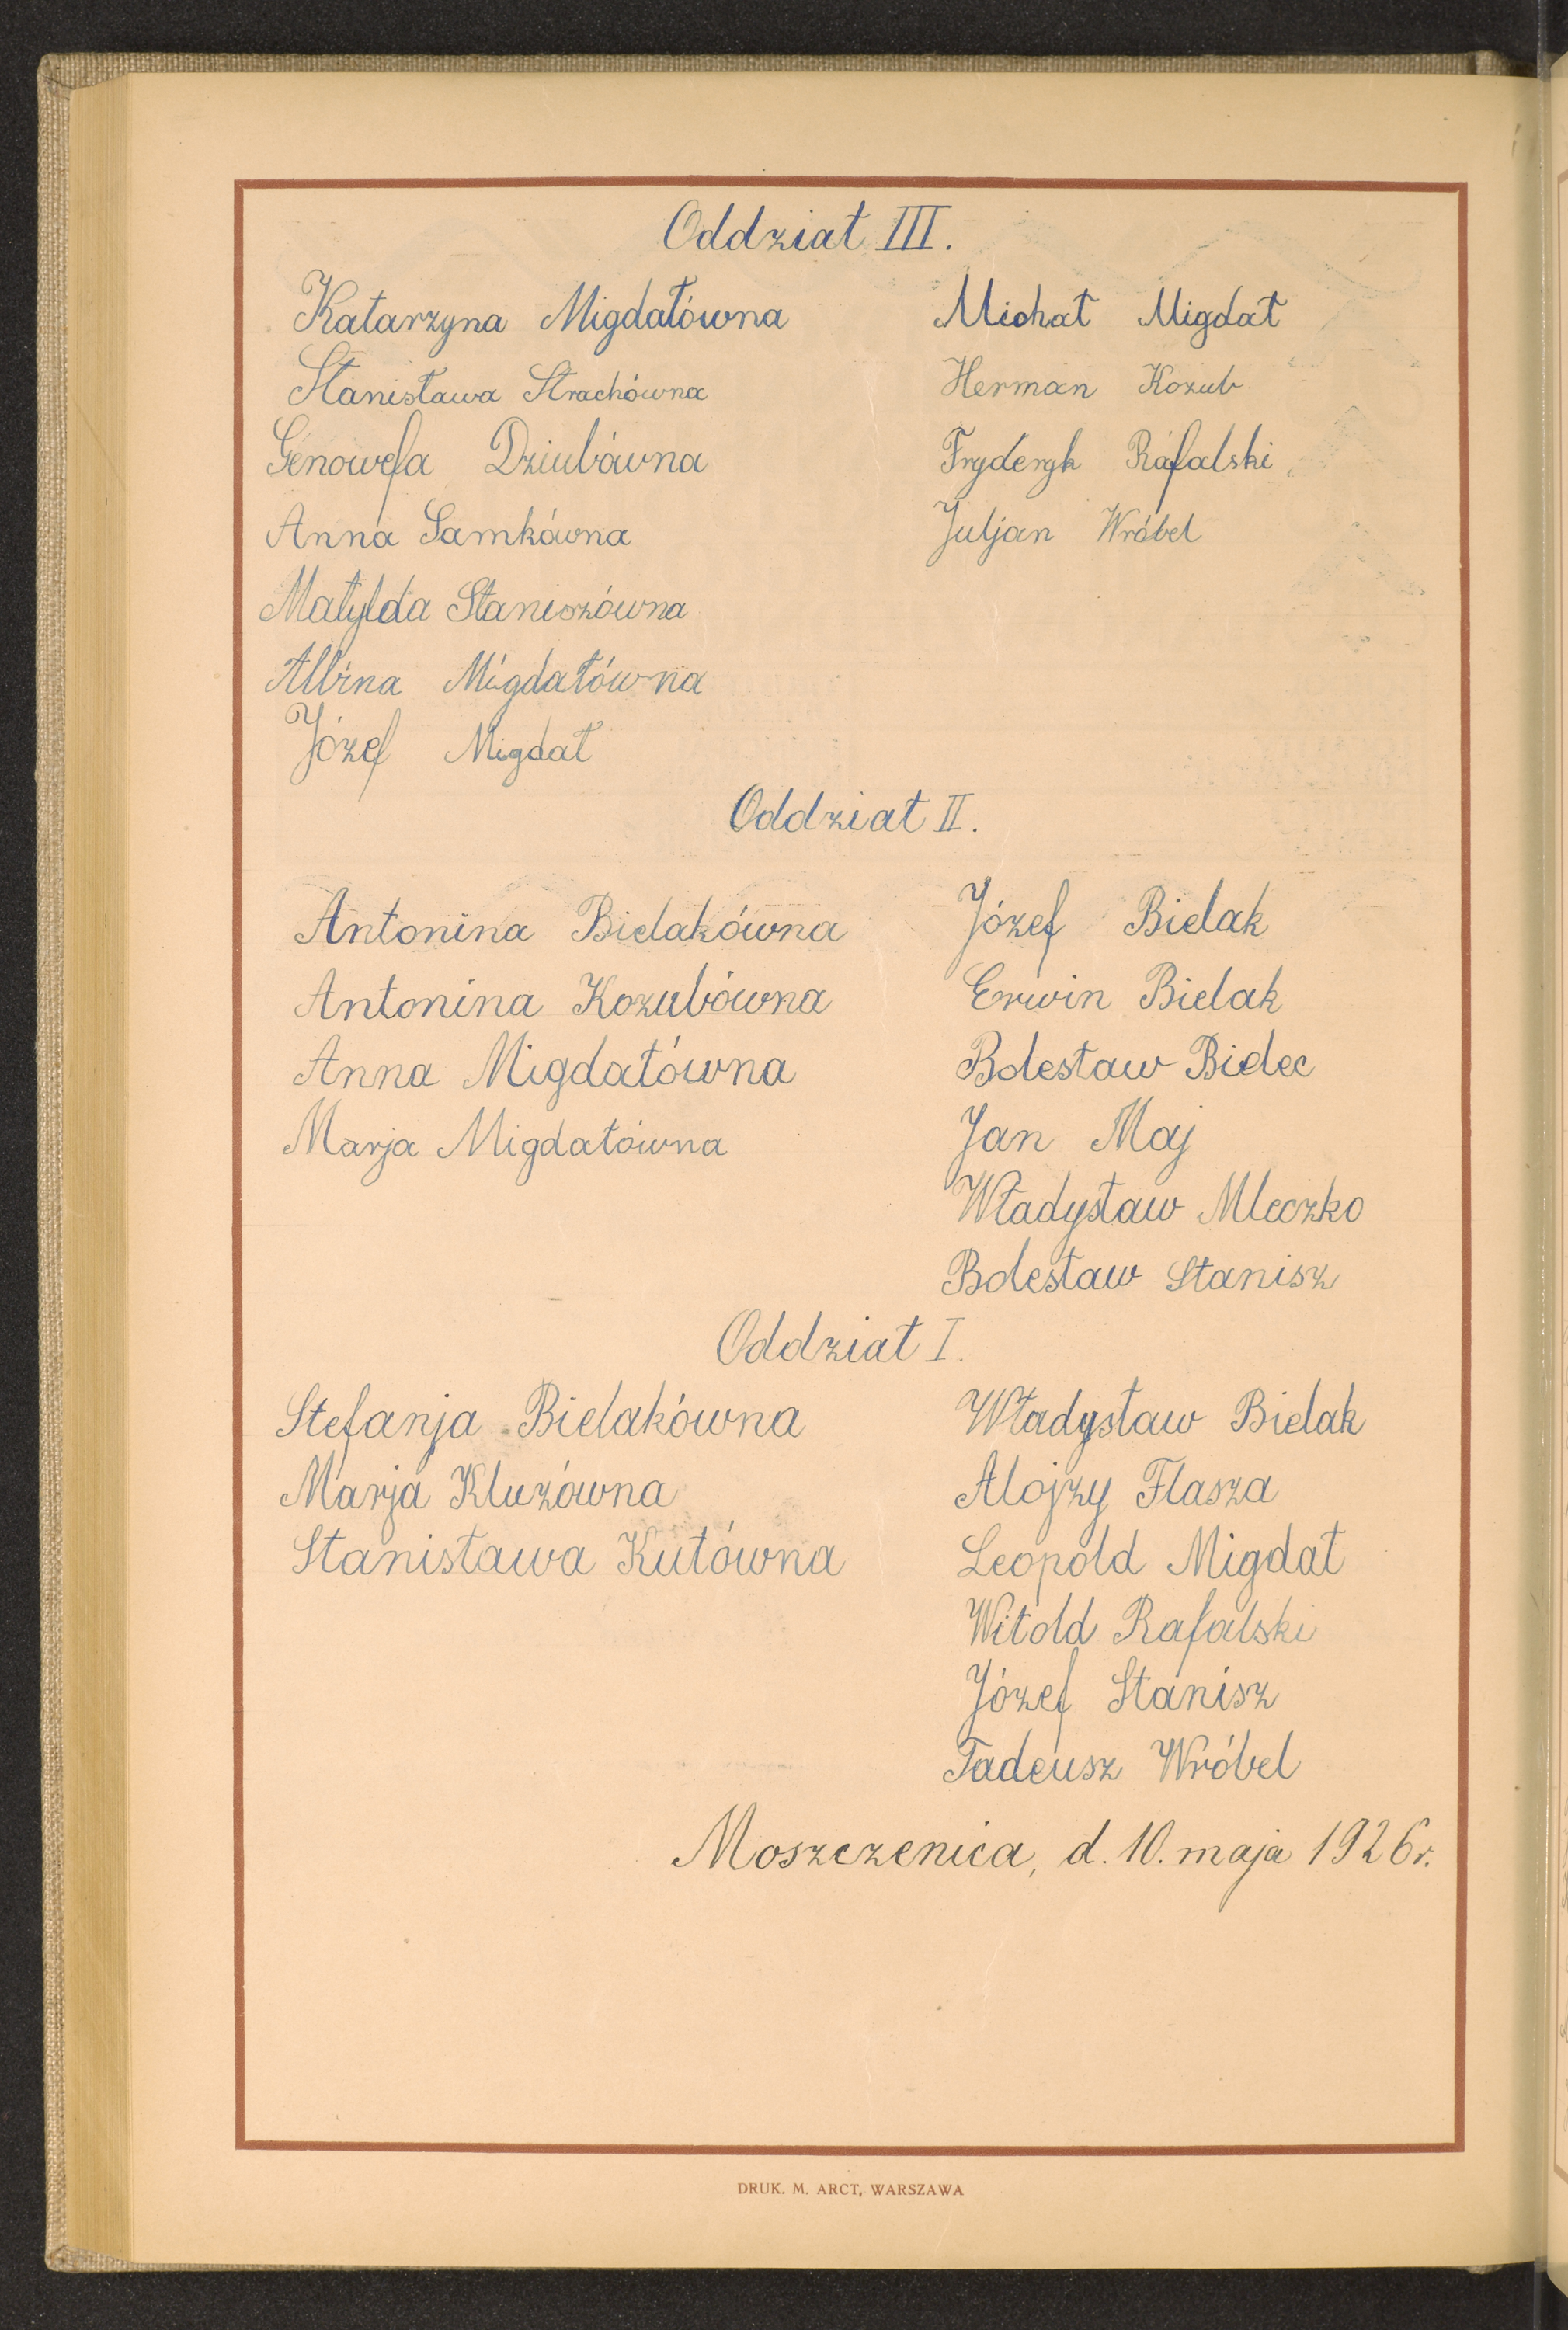 Oddział III.
Katarzyna Migdałówna
Stanisława Strachówna
Genowefa Dziubówna
Anna Samkówna
Matylda Staniszówna
Albina Migdałówna
Józef Migdał
Michał Migdał
Herman Kozub
Fryderyk Rafalski
Juljan Wróbel
Oddział II.
Antonina Bielakówna
Antonina Kozubówna
Anna Migdałówna
Marja Migdałówna
Józef Bielak
Erwin Bielak
Bolesław Bielec
Jan Maj
Władysław Mleczko
Bolesław Stanisz
Oddział I.
Stefanja Bielakówna
Marja Kluzówna
Stanisława Kutówna
Władysław Bielak
Alojzy Flasza
Leopold Migdał
Witold Rafalski
Józef Stanisz
Tadeusz Wróbel
Moszczenica, d. 10. maja 1926 r.
DRUK. M. ARCT, WARSZAWA